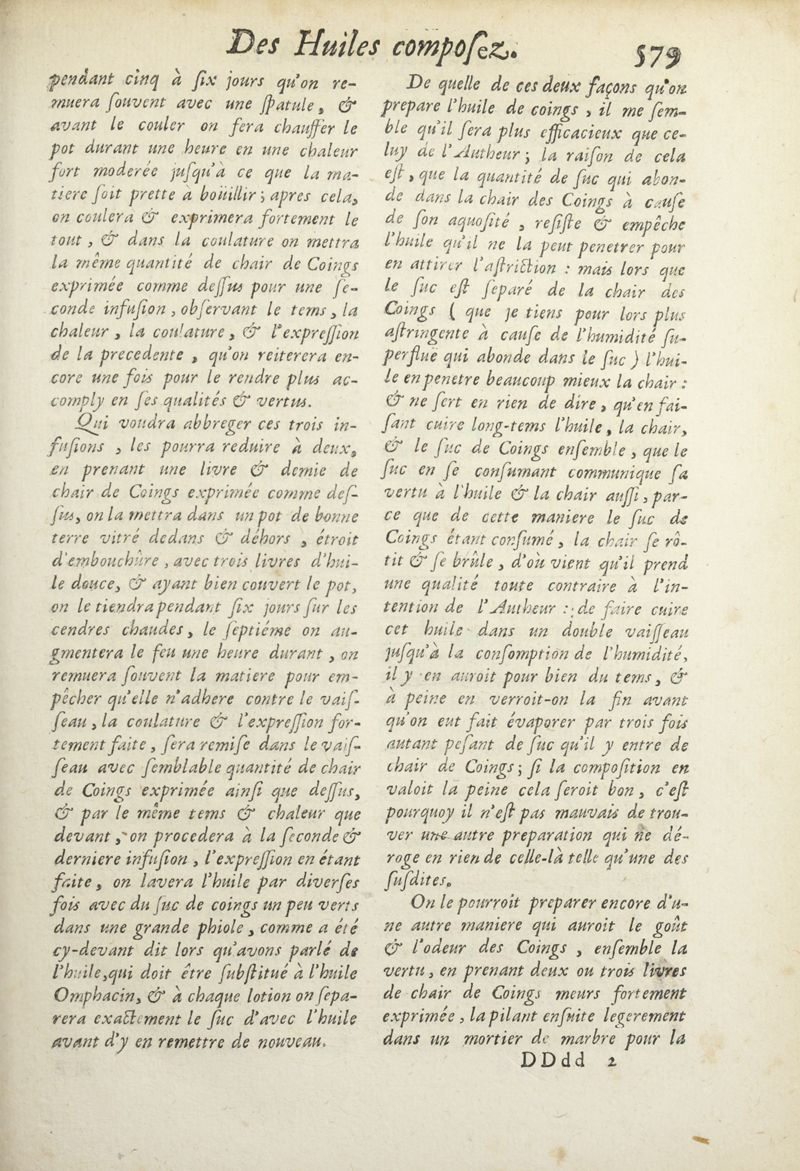 Des Huiles composez. 579
pendant cinq à six jours qu'on re-
muera souvent avec une spatule, &
avant le couler on fera chauffer le
pot durant une heure en une chaleur
fort moderée jusqu'à ce que la ma-
tiere soit prette a boüillir; apres cela,
on coulera & exprimera fortement le
tout, & dans la coulature on mettra
la même quantité de chair de Coings
exprimée comme dessus pour une se-
conde infusion, observant le tems, la
chaleur, la coulature, & l'expression
de la precedente, qu'on reiterera en-
core une fois pour le rendre plus ac-
comply en ses qualités & vertus.
Qui voudra abbreger ces trois in-
fusions, les pourra reduire à deux,
en prenant une livre & demie de
chair de Coings exprimée comme des-
sus, on la mettra dans un pot de bonne
terre vitré dedans & dehors, étroit
d'embouchûre, avec trois livres d'hui-
le douce, & ayant bien couvert le pot,
on le tiendra pendant six jours sur les
cendres chaudes, le septiéme on au-
gmentera le feu une heure durant, on
remuera souvent la matiere pour em-
pêcher qu'elle n'adhere contre le vais-
seau, la coulature & l'expression for-
tement faite, sera remise dans le vais-
seau avec semblable quantité de chair
de Coings exprimée ainsi que dessus,
& par le même tems & chaleur que
devant, on procedera à la seconde &
derniere infusion, l'expression en étant
faite, on lavera l'huile par diverses
fois avec du suc de coings un peu verts
dans une grande phiole, comme a été
cy-devant dit lors qu'avons parlé de
l'huile,qui doit être substitué à l'huile
Omphacin, & à chaque lotion on sepa-
rera exactement le suc d'avec l'huile
avant d'y en remettre de nouveau.
De quelle de ces deux façons qu'on
prepare l'huile de coings, il me sem-
ble qu'il sera plus efficacieux que ce-
luy de l'Autheur; la raison de cela
est, que la quantité de suc qui abon-
de dans la chair des Coings à cause
de son aquosité, resiste & empêche
l'huile qu'il ne la peut penetrer pour
en attirer l'astriction : mais lors que
le suc est separé de la chair des
Coings ( que je tiens pour lors plus
astringente à cause de l'humidité su-
perfluë qui abonde dans le suc ) l'hui-
le en penetre beaucoup mieux la chair :
& ne sert en rien de dire, qu'en fai-
sant cuire long-tems l'huile, la chair,
& le suc de Coings ensemble, que le
suc en se consumant communique sa
vertu à l'huile & la chair aussi, par-
ce que de cette maniere le suc de
Coings étant consumé, la chair se rô-
tit & se brûle, d'où vient qu'il prend
une qualité toute contraire à l'in-
tention de l'Autheur : de faire cuire
cet huile dans un double vaisseau
jusqu'à la consomption de l'humidité,
il y en auroit pour bien du tems, &
à peine en verroit-on la fin avant
qu'on eut fait évaporer par trois fois
autant pesant de suc qu'il y entre de
chair de Coings; si la composition en
valoit la peine cela seroit bon, c'est
pourquoy il n'est pas mauvais de trou-
ver une autre preparation qui ne dé-
roge en rien de celle-là telle qu'une des
susdites.
On le pourroit preparer encore d'u-
ne autre maniere qui auroit le goût
& l'odeur des Coings, ensemble la
vertu, en prenant deux ou trois livres
de chair de Coings meurs fortement
exprimée, la pilant ensuite legerement
dans un mortier de marbre pour la
DDdd 2